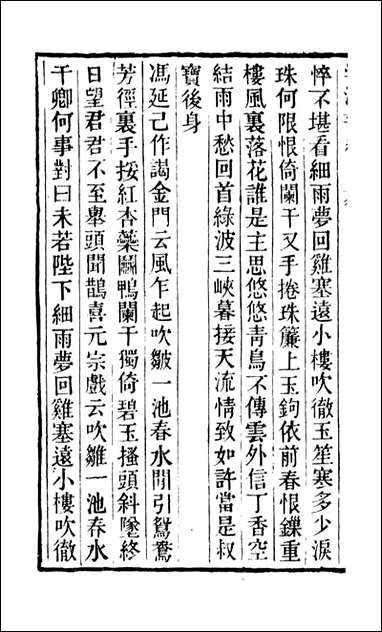 悴不堪看細雨夢回雞塞遠小樓吹徹玉笙寒多少淚
珠何限恨倚闌干又手捲珠簾上玉鉤依前春恨鏁重
樓風裏落花誰是主思悠悠青鳥不傳雲外信丁香空
結雨中愁回首綠波三峽暮接天流情致如許當是叔
寶後身
馮延己作謁金門云風乍起吹皺一池春水閒引鴛鴦
芳徑裏手挼紅杏蘂鬬鴨闌干獨倚碧玉搔頭斜墜終
日望君君不至舉頭聞鵲喜元宗戲云吹皺一池春水
干卿何事對曰未若陛下細雨夢回雞塞遠小樓吹徹